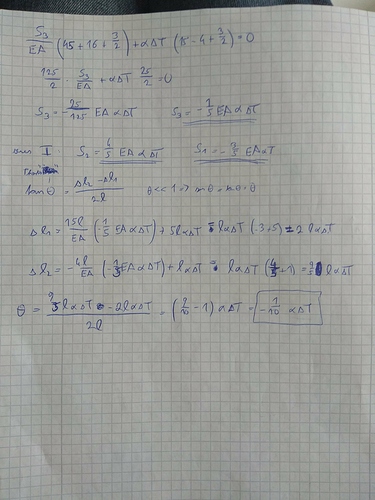 S₃/EA (45 + 16 + 3/2) + αΔT (15 - 4 + 3/2) = 0
125/2 · S₃/EA + αΔT 25/2 = 0
S₃ = - 25/125 EA αΔT S₃ = - 1/5 EA αΔT
I: S₂ = 4/5 EA αΔT S₁ = - EAαT
tanθ = Δl₂ - Δl₁ / 2l θ << 1 ⇒ θ
Δl₁ = 15l/EA (- 1/5 EA αΔT) + 5lαΔT = lαΔT (-3+5) = 2 lαΔT
Δl₂ = - 4l/EA (- 1/5 EA αΔT) + lαΔT = lαΔT (4/5 + 1) = lαΔT
θ = 9/5 lαΔT - 2lαΔT / 2l = (9/10 - 1) αΔT = - 1/10 αΔT